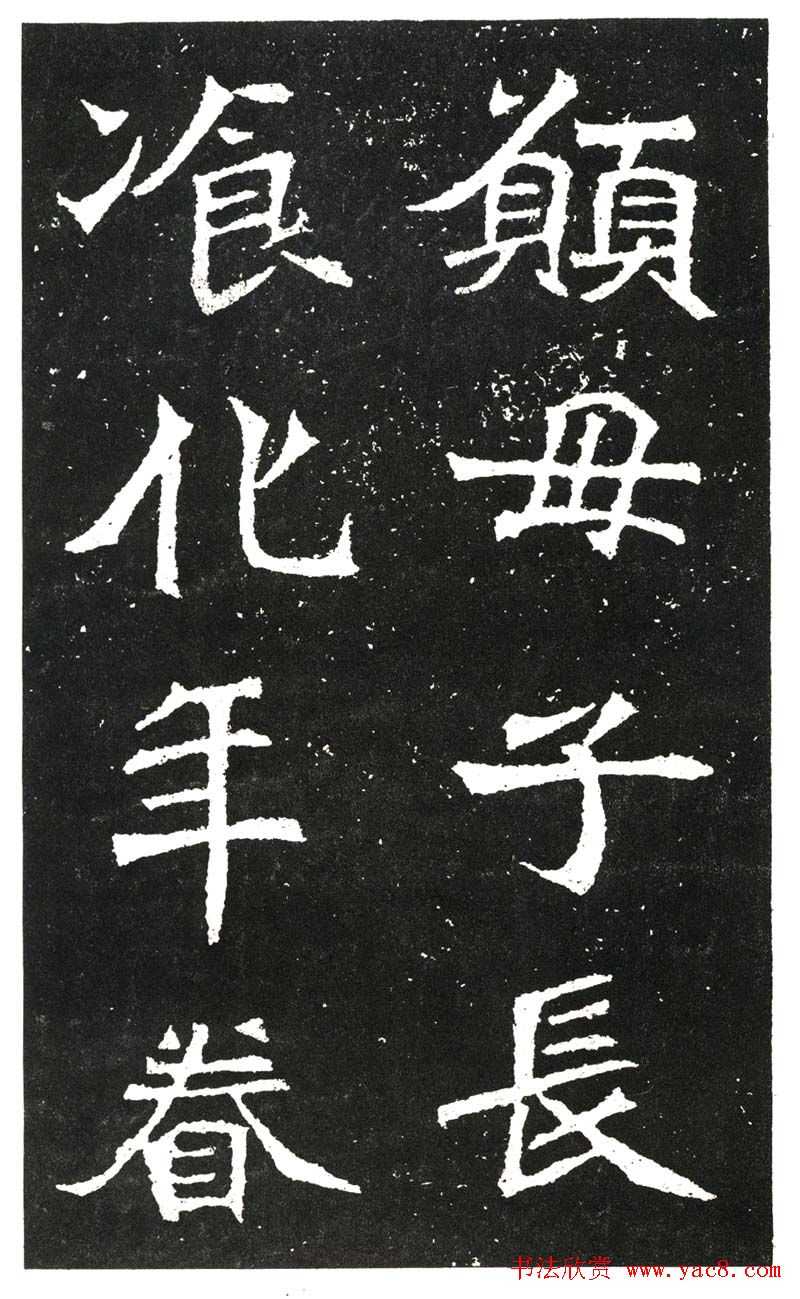 願母子長
飡化年眷
书法欣赏 www.yac8.com